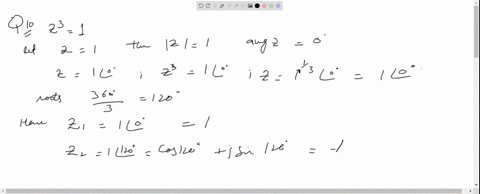 Q10 z³ = 1
let z = 1 then |z| = 1 arg z = 0°
z = 1∠0° ; z³ = 1∠0° ; z = 1^1/3 ∠0° = 1∠0°
roots 360°/3 = 120°
Have z₁ = 1∠0° = 1
z₂ = 1∠120° = cos120° + j sin 120° = -1